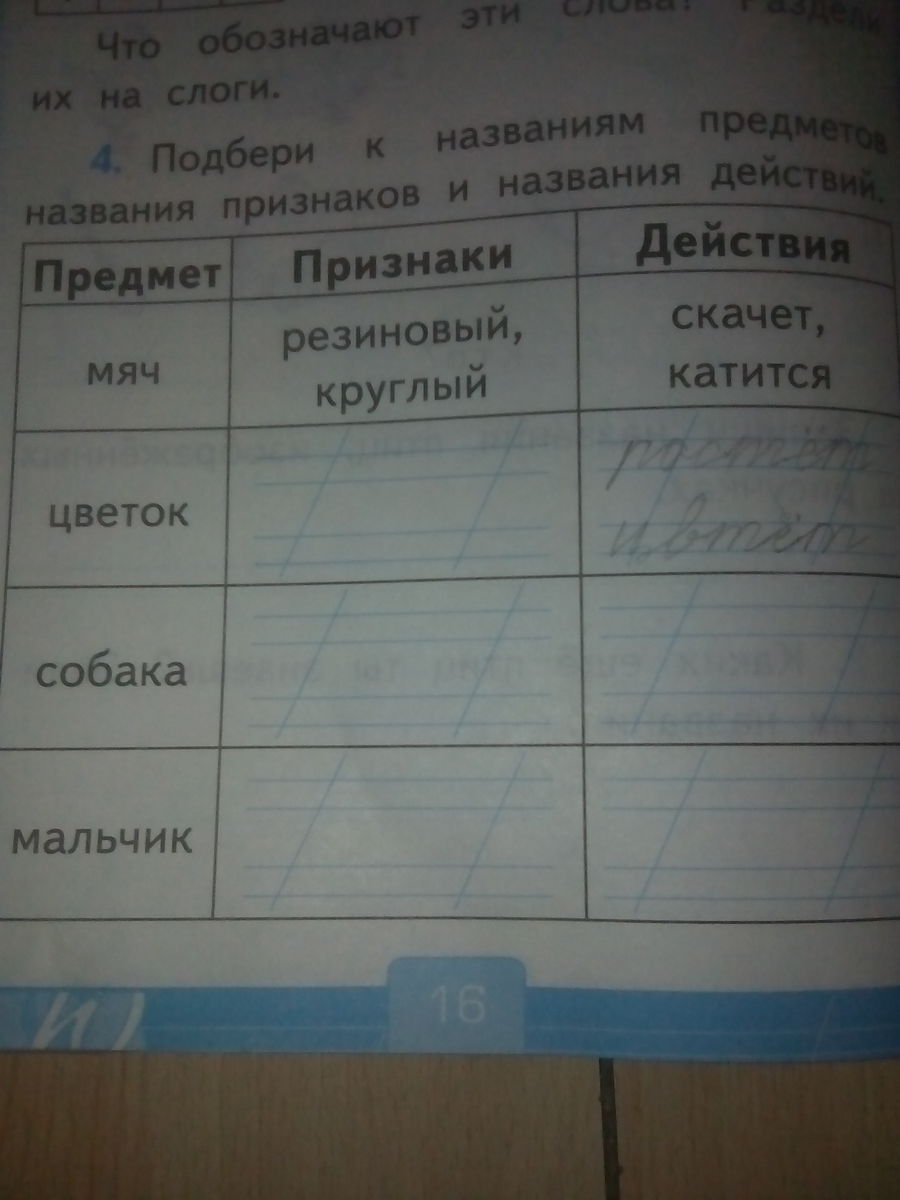 Что обозначают эти слова? Раздели
их на слоги.
4. Подбери к названиям предметов
названия признаков и названия действий.
Предмет Признаки Действия
мяч
резиновый,
круглый
скачет,
катится
цветок
растёт
цвтёт
собака
мальчик
16